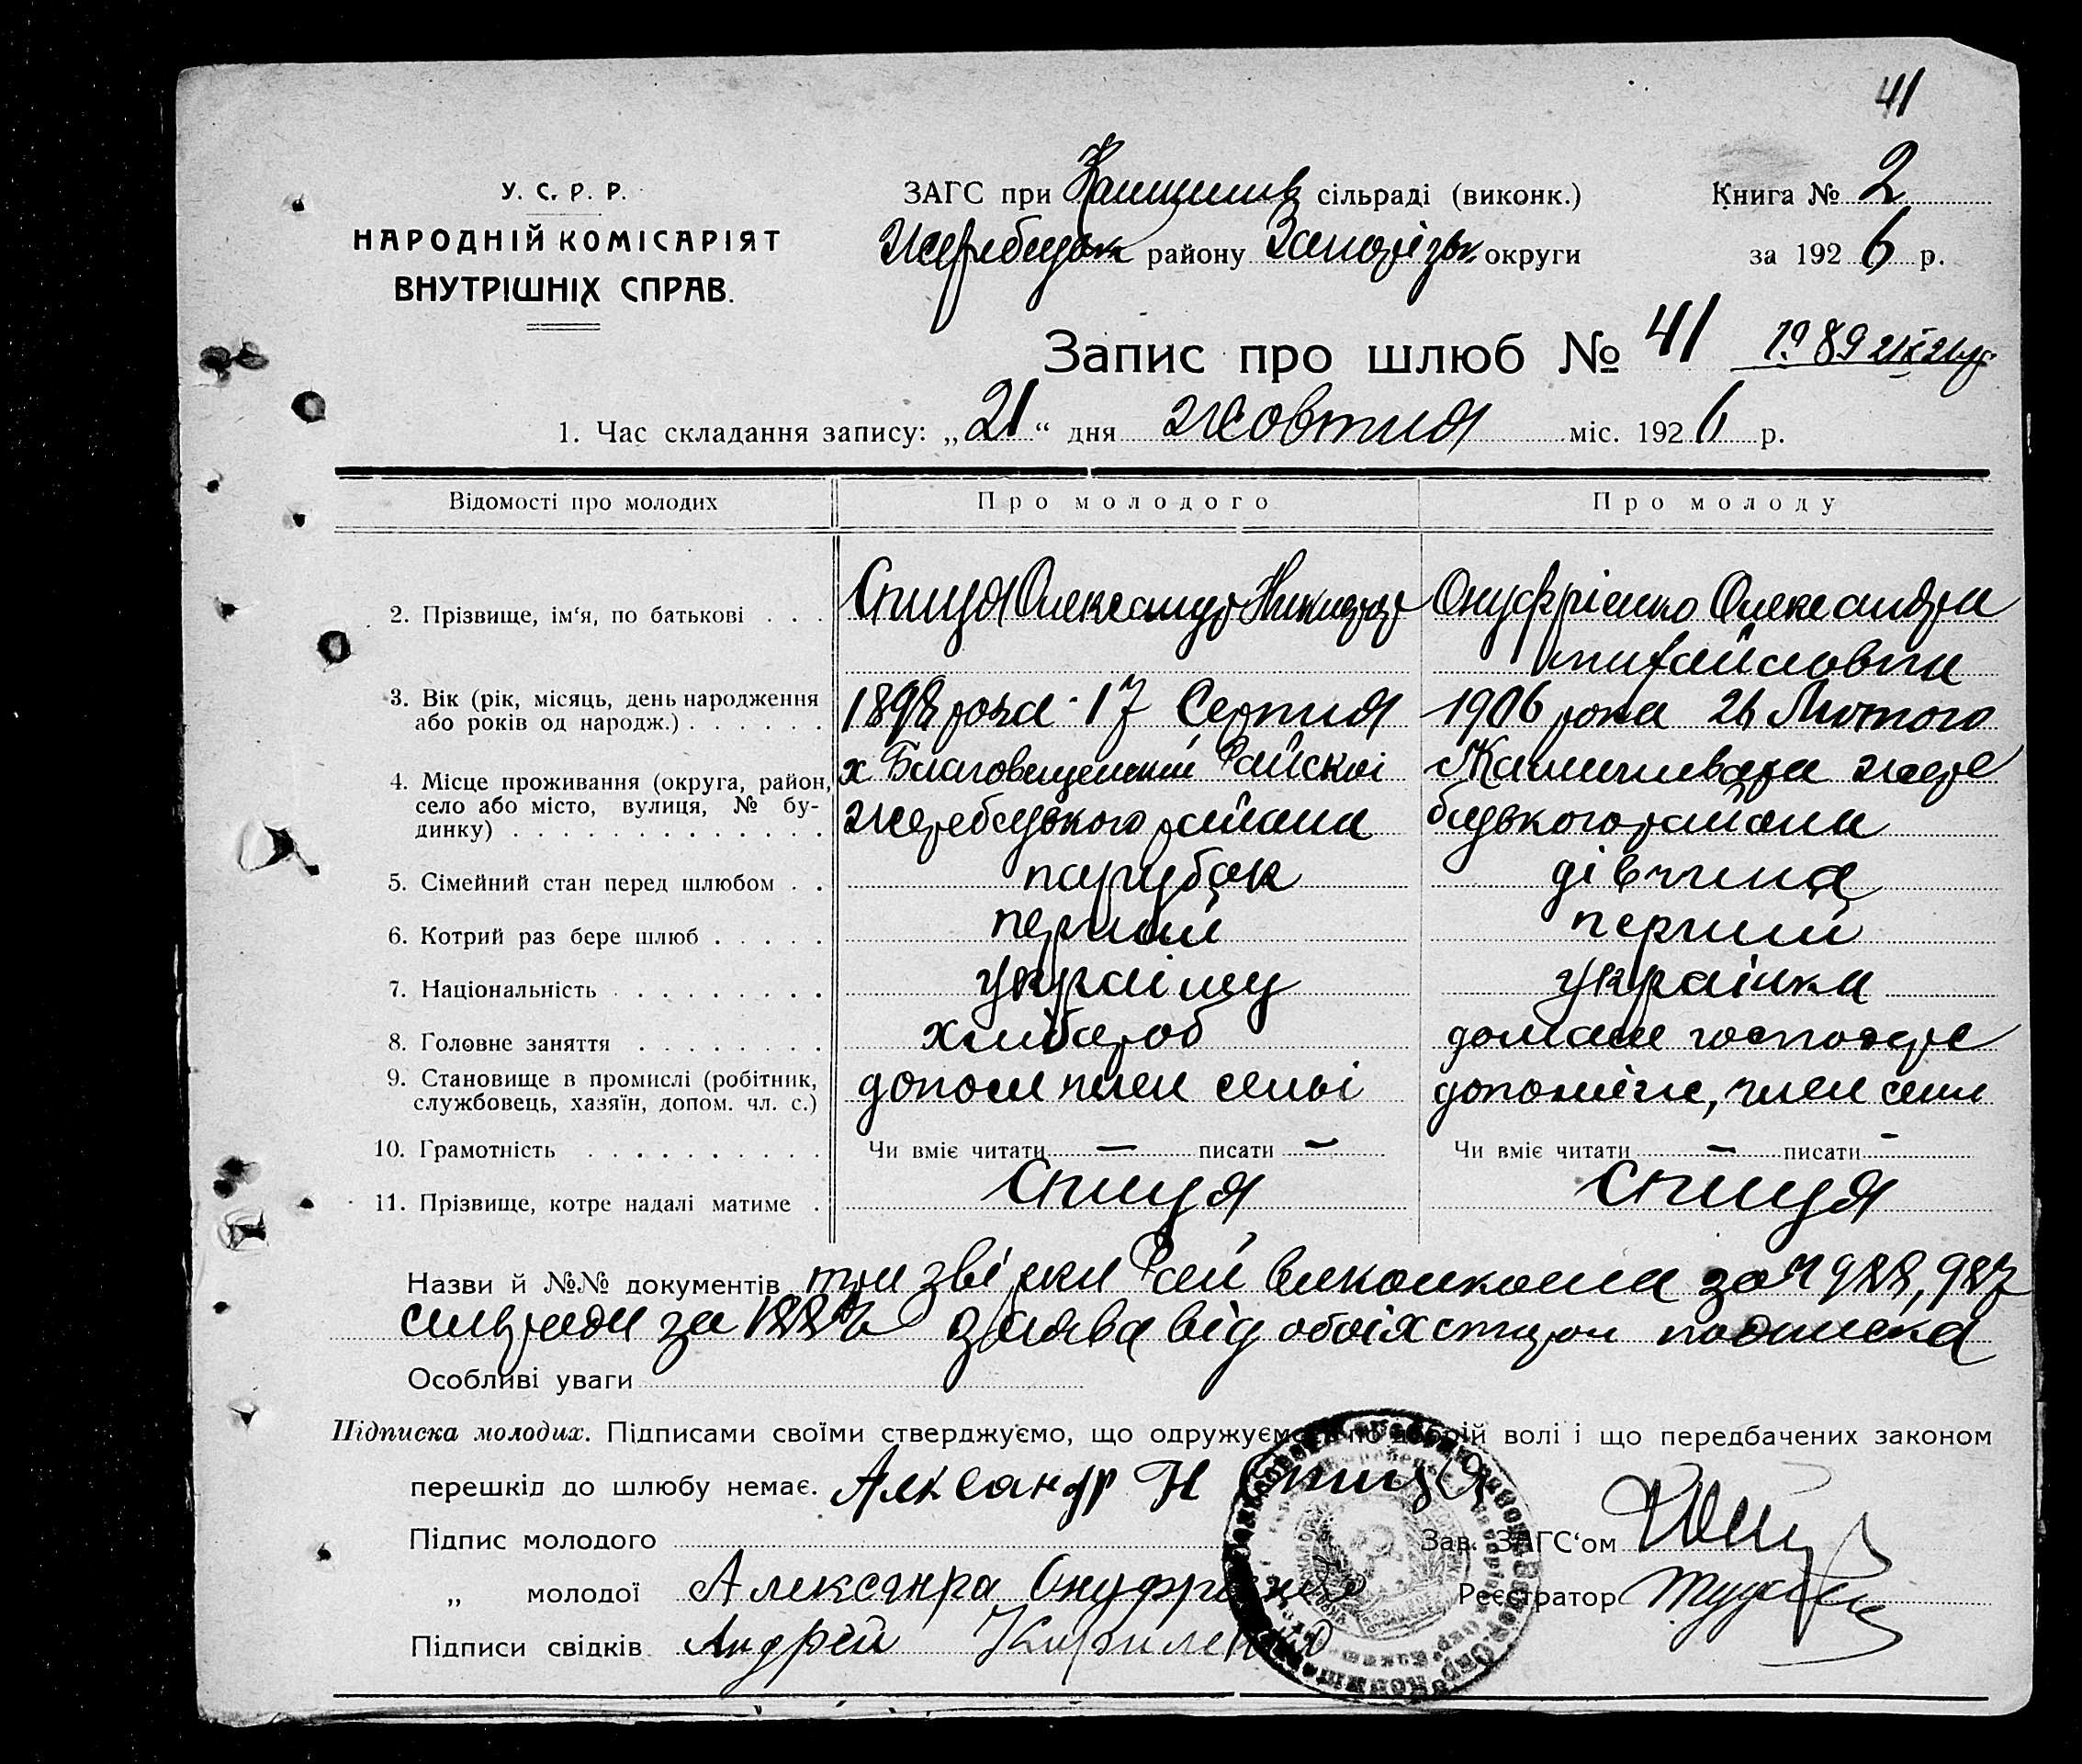 41
У. С. Р. Р.
НАРОДНІЙ КОМІСАРІЯТ
ВНУТРІШНІХ СПРАВ.
ЗАГС при сільраді (виконк.)
Жеребецьк району Запорізьк округи
Книга № 2
за 1926 р.
Запис про шлюб № 41
1. Час складання запису: „21“ дня жовтня міс. 1926 р.
Відомості про молодих
Про молодого
Про молоду
2. Прізвище, ім‘я, по батькові . . .
Спиця Олександр
Онуфрієнко Олександра
михайловна
3. Вік (рік, місяць, день народження
або років од народж.) . . . . . .
1898 рока 17 Серпня
1906 рока 26 Лютого
4. Місце проживання (округа, район,
село або місто, вулиця, № бу-
динку) . . . . . . . . . . . . .
х Благовещенский Райской
жеребецького района
жере
бецького района
5. Сімейний стан перед шлюбом . .
парубак
дівчина
6. Котрий раз бере шлюб . . . . .
перший
перший
7. Національність . . . . . . . . .
українец
українка
8. Головне заняття . . . . . . . .
хлібароб
домашне господарс
9. Становище в промислі (робітник,
службовець, хазяїн, допом. чл. с.)
допом член семьі
член семи
10. Грамотність . . . . . . . . . .
Чи вміє читати — писати —
Чи вміє читати — писати —
11. Прізвище, котре надалі матиме .
Спиця
Спиця
Назви й №№ документів три звірки Рай виконкома за № 988, 987
сильради за заява від обоіх сторон подписка
Особливі уваги
Підписка молодих. Підписами своїми стверджуємо, що одружуємось по добрій волі і що передбачених законом
перешкід до шлюбу немає. Александр Н Спиця
Підпис молодого
Зав. ЗАГС‘ом
„ молодої Алексанра Онуфриенко
Реєстратор
Підписи свідків Андрей Кириленко